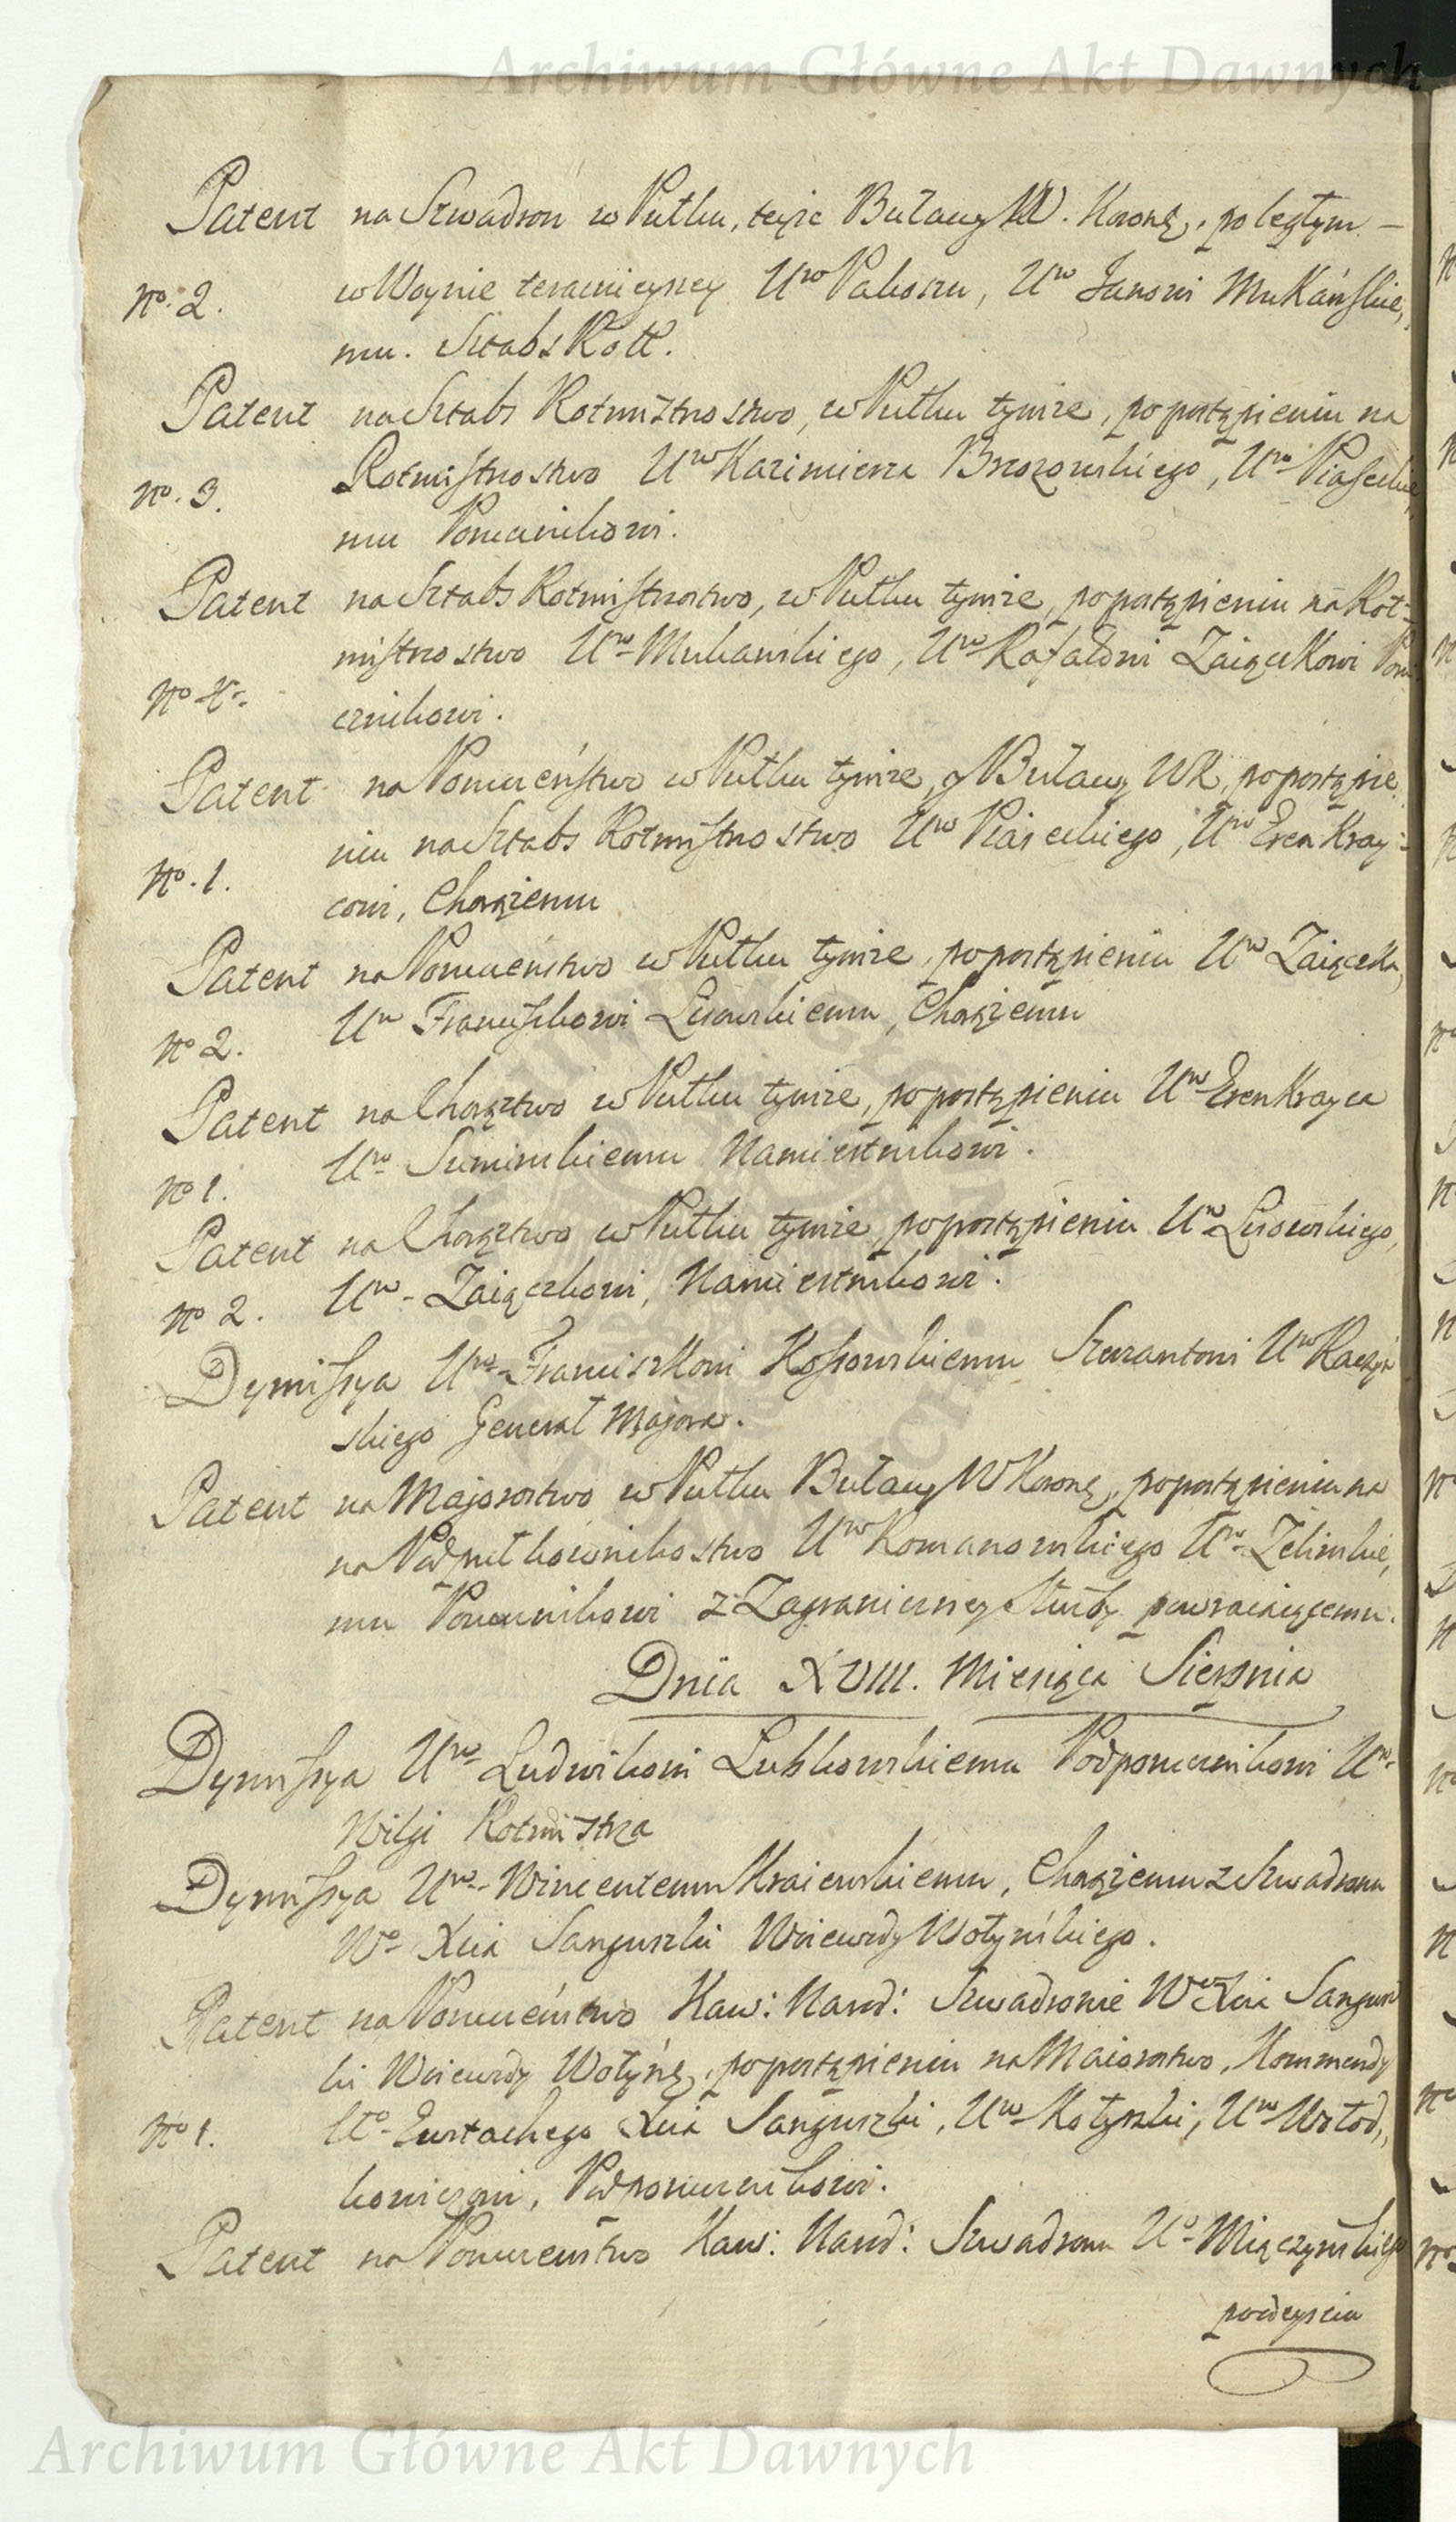 Archiwum Główne Akt Dawnych
Patent na Szwadron w Pułku, teyże Buławy W. Koroṇ, poległym –
No. 2. w Woynie teraznieyszey Uro Paboszu, Uro Janowi Mukańskie,
mu. Sztabs Rott.
Patent na Sztabs Rotmistrzostwo, w Pułku tymże, po postąpieniu na
No. 3. Rotmistrzostwo Uro Kazimierza Brzozowskiego, Uro Piaseckie,
mu Porucznikowi.
Patent na Sztabs Rotmistrzostwo, w Pułku tymże, po postąpieniu na Rot-
No 4. mistrzostwo Uro Mukańskiego, Uro Rafałowi Zaiączkowi Poru
cznikowi.
Patent na Poruczeństwo w Pułku tymże, Buławy WK, po postąpie
No. 1. niu na Sztabs Rotmistrzostwo Uro Piaseckiego, Uro Erenkray-
cowi, Chorążemu
Patent na Poruczeństwo w Pułku tymże, po postąpieniu Uro Zaiączka,
No 2. Uro Franciszkowi Lisowskiemu, Chorążemu
Patent na Chorąztwo w Pułku tymże, po postąpieniu Uro Erenkrayca
No 1. Uro Suminskiemu Namiestnikowi.
Patent na Chorąztwo w Pułku tymże, po postąpieniu Uro Lisowskiego,
No 2. Uro Zaiączkowi, Namiestnikowi.
Dymissya Uro Franciszkowi Kossowskiemu Szerżantowi Uro Raczyń
skiego Generał Majora.
Patent na Majorostwo w Pułku Buławy W Koroṇ, po postąpieniu na
na Podpułkownikostwo Uro Romanowskiego Uro Zelinskie,
mu Porucznikowi z Zagraniczney Służby powracaiącemu.
Dnia XVIII. Miesiąca Sierpnia
Dymissya Uro Ludwikowi Lubkowskiemu Podporucznikowi Uro
Wilgi Rotmistrza
Dymissya Uro Wincentemu Kraiewskiemu, Chorążemu z Szwadronu
Wo Xcia Sanguszki Woiewody Wołyńskiego.
Patent na Poruczeństwo Kaw: Narod: Szwadronie Wo Xcia Sangusz
ki Woiewody Wołyṇ, po postąpieniu na Maiorostwo, Kommendy
No 1. Uo Eustachego Xcia Sanguszki, Uro Kotyszki, Uro Wołod,,
kowiczowi, Podporucznikowi.
Patent na Poruczeństwo Kaw: Narod: Szwadronu Uo Miączyńskiego
podeyściu
Archiwum Główne Akt Dawnych